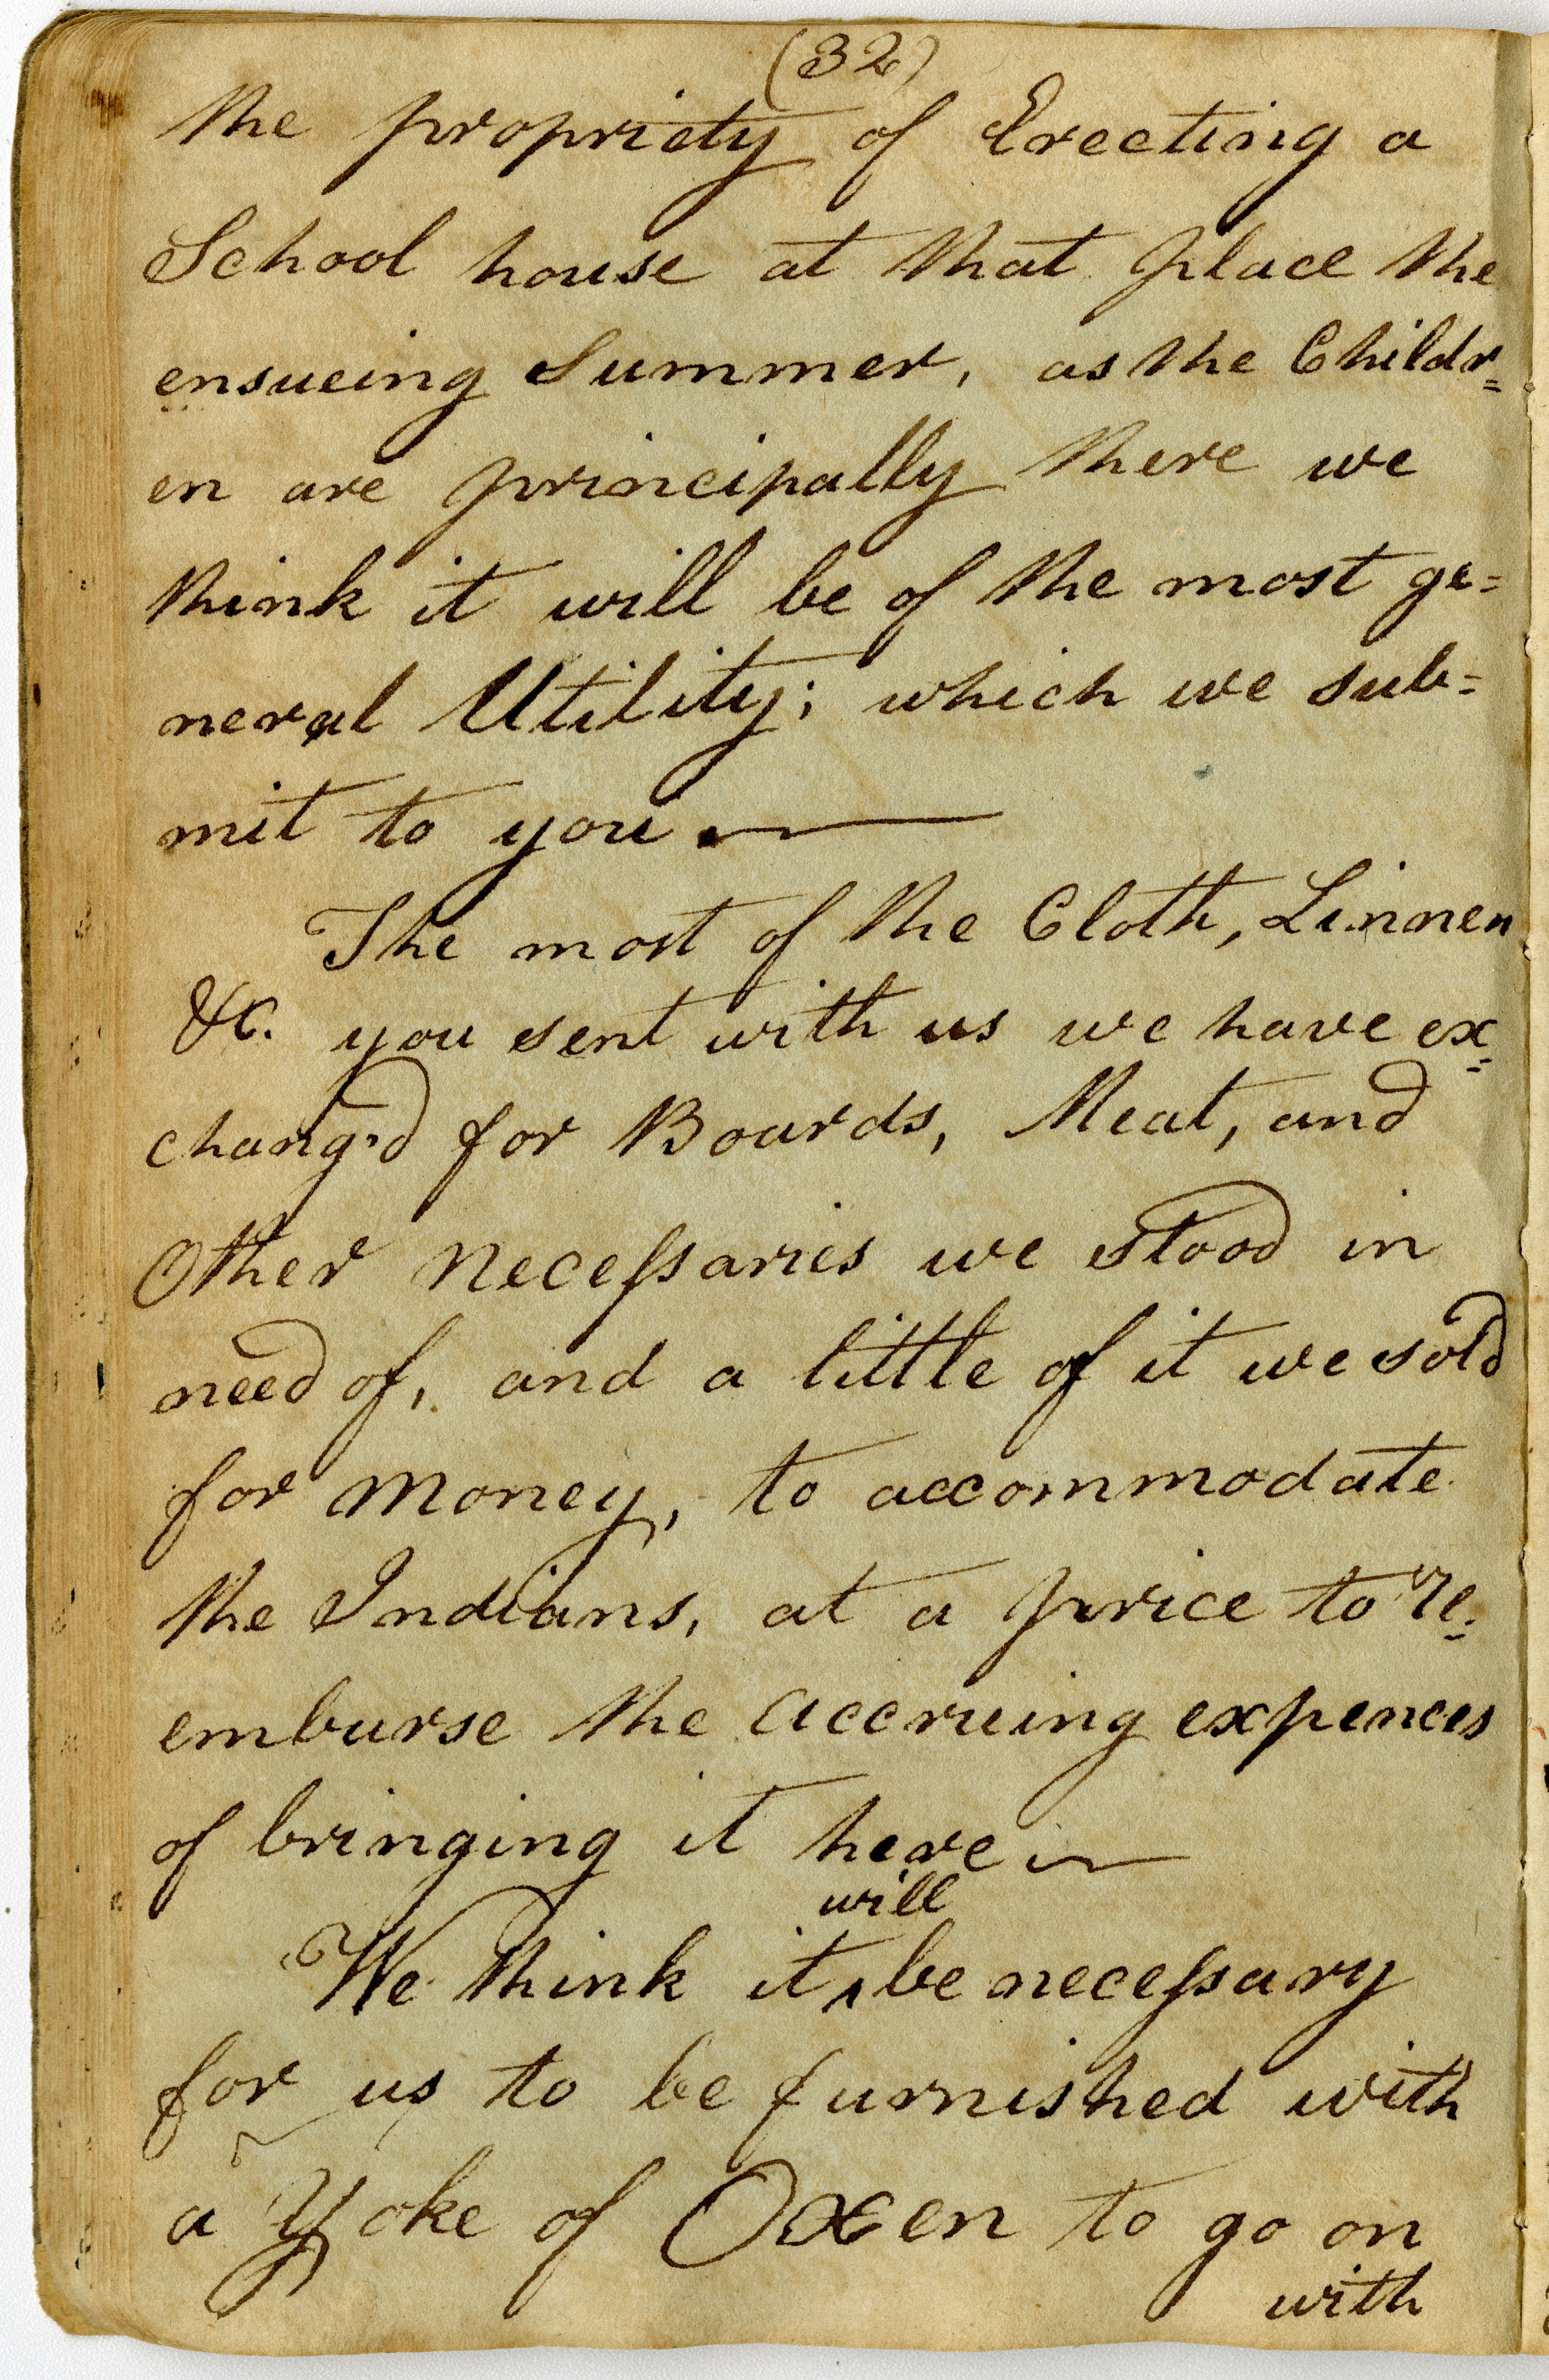 (32)
the propriety of Erecting a
School house at that place the
ensueing Summer, as the Childr=
en are principally there we
think it will be of the most ge=
neral Utility; which we sub=
mit to you —
The most of the Cloth, Linnen
&c. you sent with us we have ex=
chang'd for Boards, Meat, and
Other necessaries we stood in
need of, and a little of it we sold
for money, to accommodate
the Indians, at a price to re=
emburse the accrueing expences
of bringing it here —
will
We think it ^ be necessary
for us to be furnished with
a Yoke of Oxen to go on
with